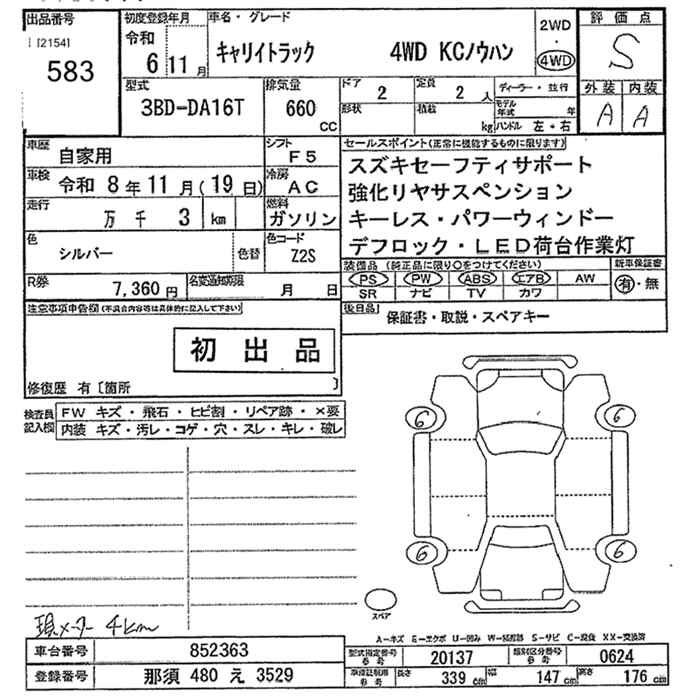 出品番号
[2154]
583
初度登録年月
令和
6 11 月
車名・グレード
キャリイトラック 4WD KCノウハン
2WD
・
4WD
評価点
S
外装 内装
A A
型式
3BD-DA16T
排気量
660
CC
ドア
2
定員
2 人
形状
積載
kg
ディーラー・並行
モデル年式 年
ハンドル 左・右
車歴
自家用
シフト
F5
車検
令和 8年 11 月( 19 日)
冷房
AC
走行
万 千 3 km
燃料
ガソリン
色
シルバー
色替
色コード
Z2S
R券
7,360 円
名変通知期限
月 日
セールスポイント(正常に機能するものに限ります)
スズキセーフティサポート
強化リヤサスペンション
キーレス・パワーウィンドー
デフロック・LED荷台作業灯
装備品 (純正品に限り○をつけてください)
新車保証書
PS PW ABS エアB AW
SR ナビ TV カワ
有・無
後日品
保証書・取説・スペアキー
注意事項申告欄(不具合内容等は具体的に記入して下さい)
初出品
修復歴 有〔箇所 〕
検査員記入欄
FW キズ・飛石・ヒビ割・リペア跡・×要
内装 キズ・汚レ・コゲ・穴・スレ・キレ・破レ
6 6
6 6
スペア
現メーター 4km
A-キズ E-エクボ U-凹み W-補修跡 S-サビ C-腐食 XX-交換済
車台番号 852363
登録番号 那須 480 え 3529
型式指定番号 20137
類別区分番号 0624
長さ 339 cm 幅 147 cm 高さ 176 cm